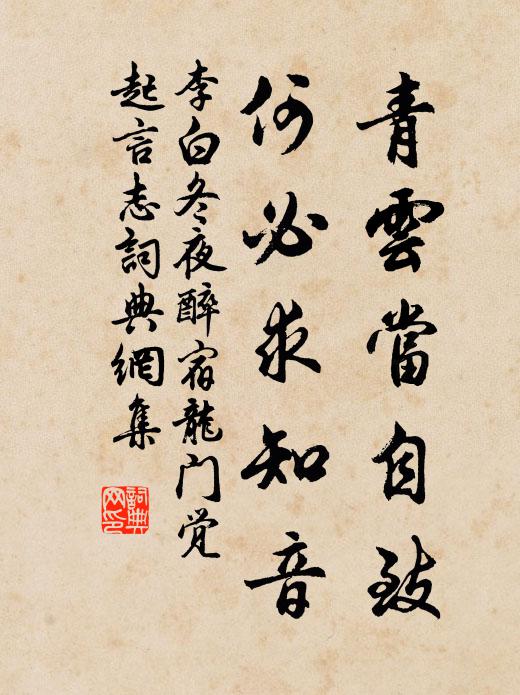 青雲當自致
何必求知音
李白冬夜醉宿龍门觉
起言志詞典網集
詞典
网印